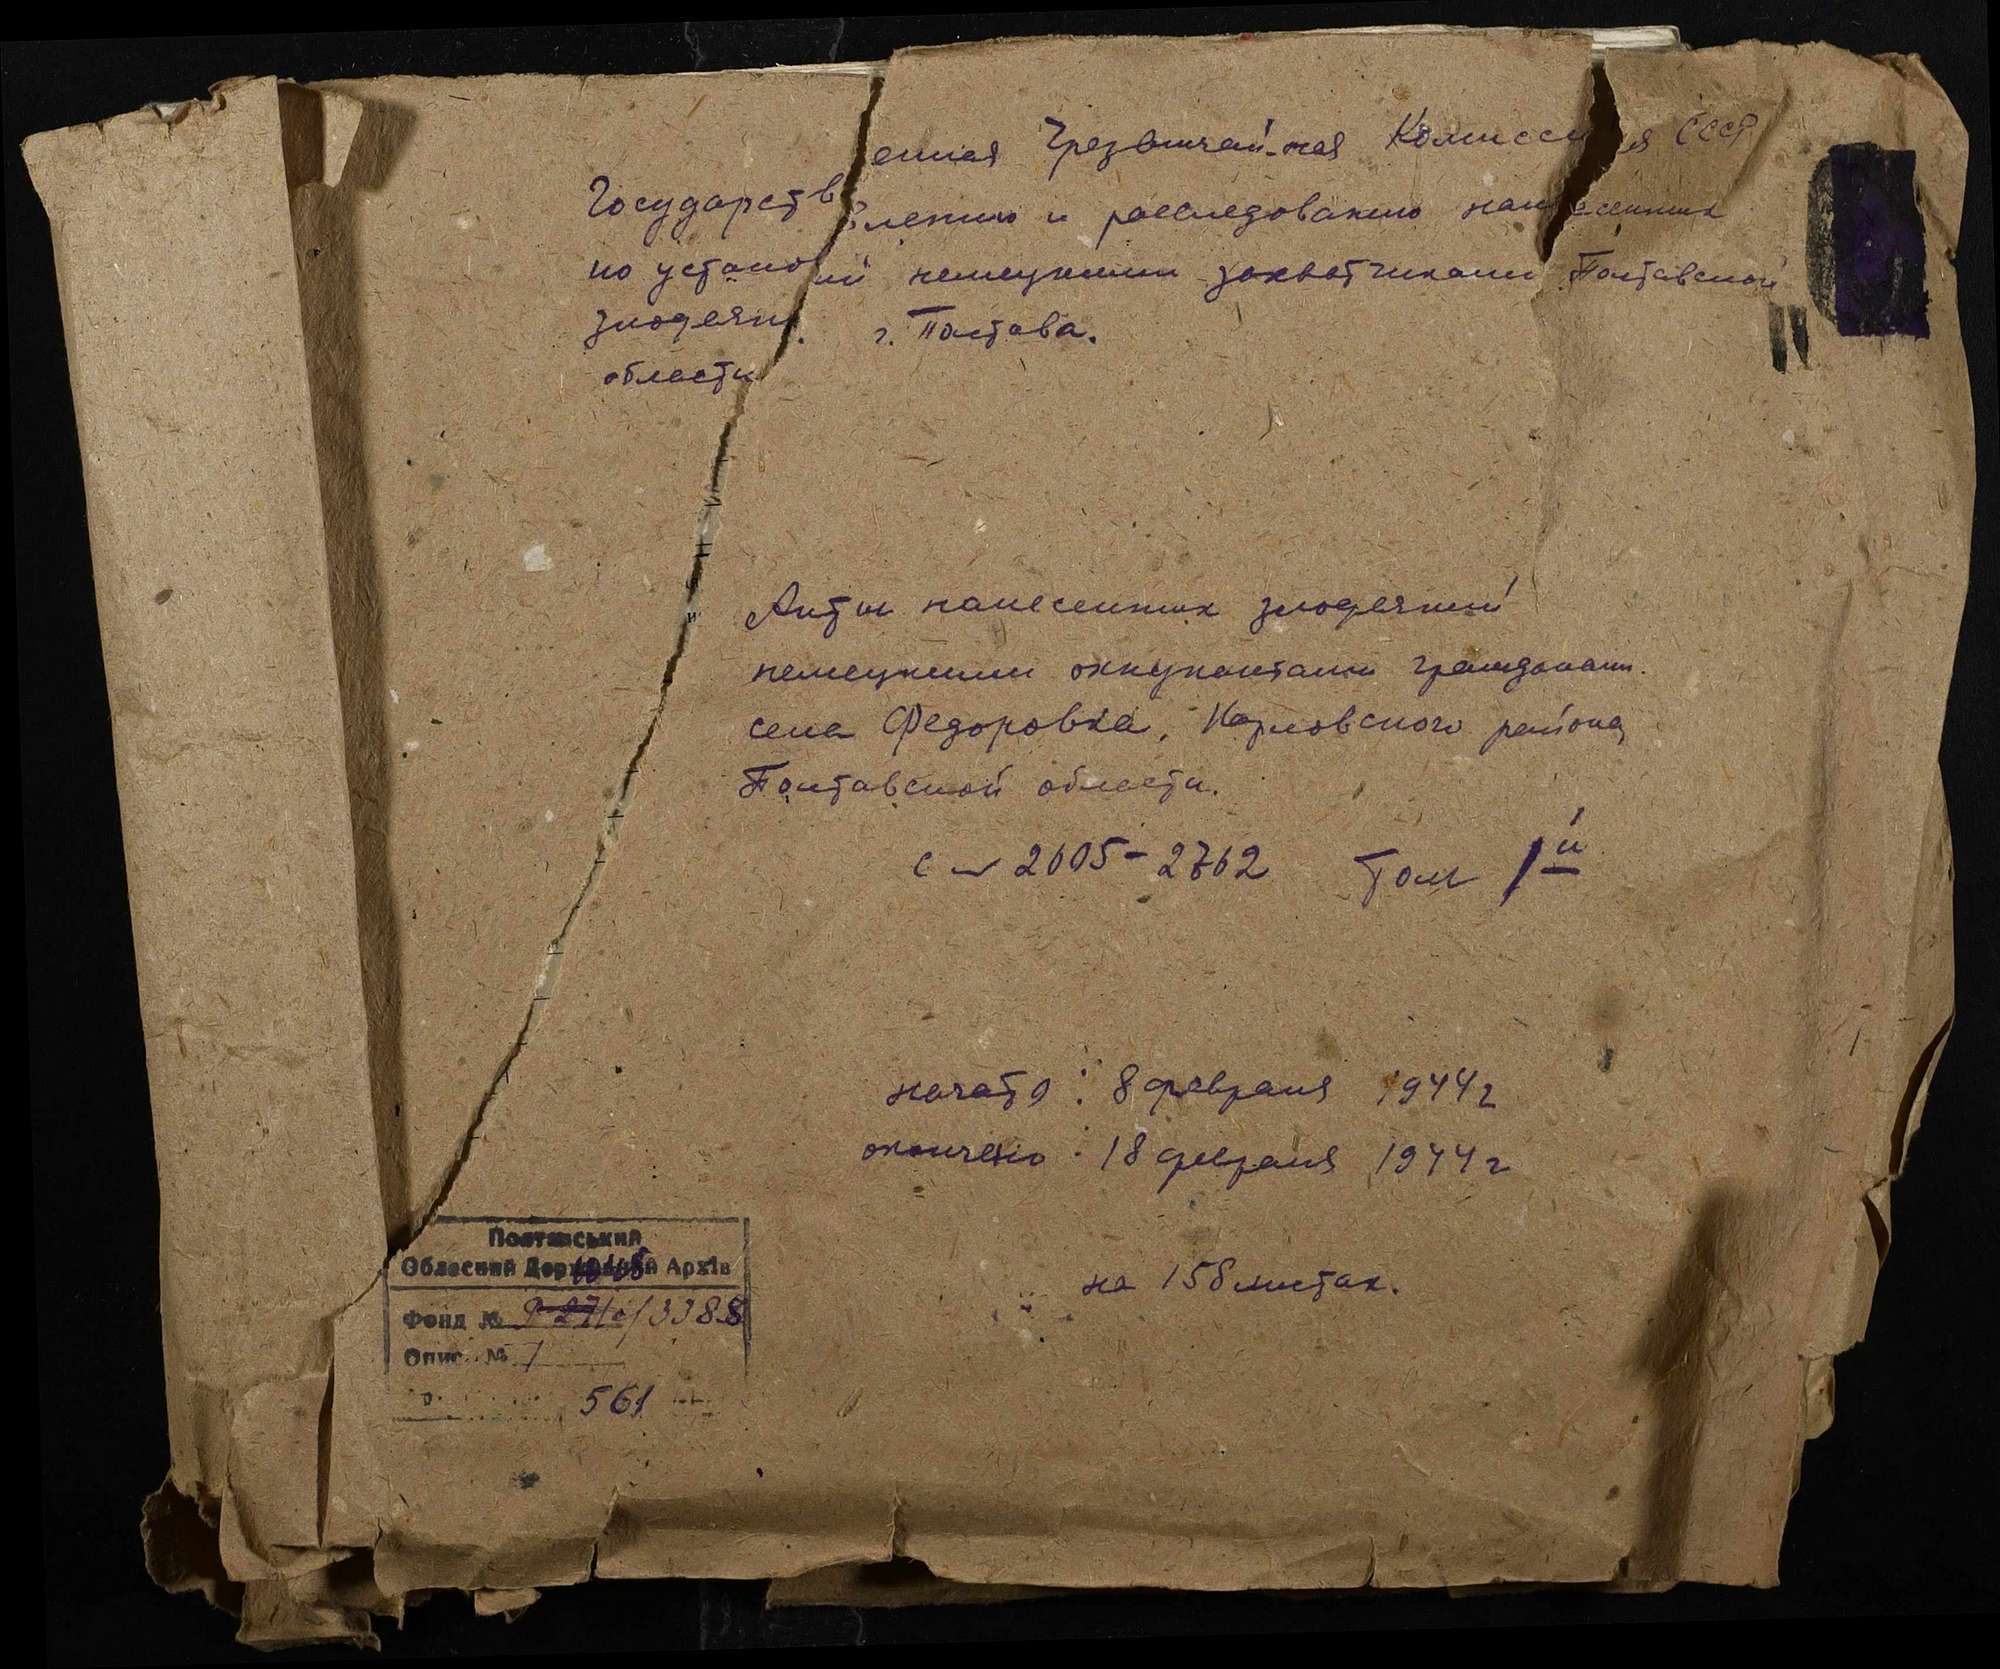 Государственная Чрезвычайная Комиссия СССР
по установлению и расследованию нанесенных
злодеяний немецкими захватчиками Полтавской
области. г. Полтава.
Акты нанесенных злодеяний
немецкими оккупантами гражданам.
села Федоровка, Карловского района,
Полтавской области.
с 2605-2762 Том 1й
начато: 8 февраля 1944 г
окончено: 18 февраля 1944 г
на 158 листах.
Полтавський
Обласний Державний Архів
Фонд № /3388
Опис № 1
561